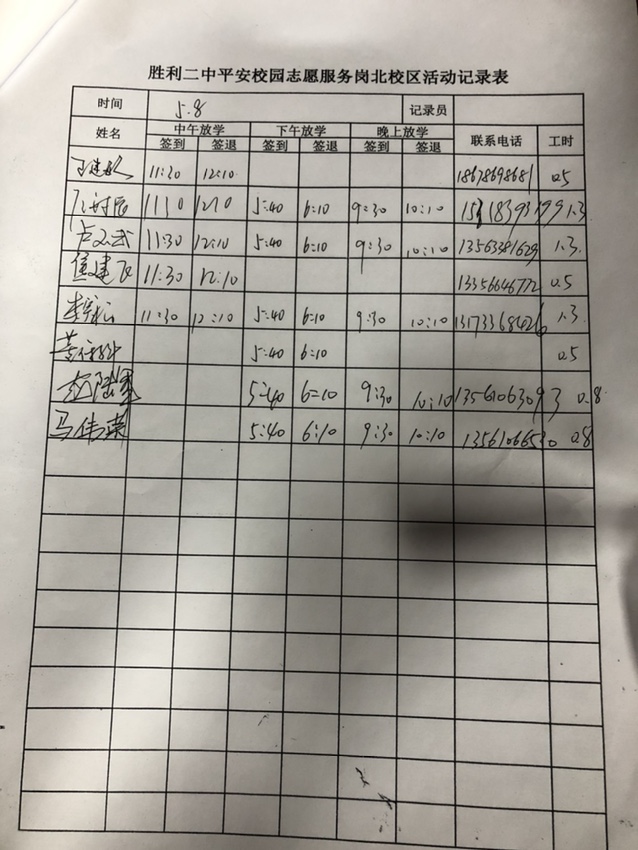 胜利二中平安校园志愿服务岗北校区活动记录表
时间 5.8 记录员
姓名 中午放学 下午放学 晚上放学 联系电话 工时
签到 签退 签到 签退 签到 签退
11:30 12:10 18678698681 0.5
1130 1210 5:40 6:10 9:30 10:10 1.3
卢立武 11:30 12:10 5:40 6:10 9:30 10:10 13563381629 1.3.
焦建飞 11:30 12:10 13356646772 0.5
11:30 12:10 5:40 6:10 9:30 10:10 1.3
5:40 6:10 0.5
5:40 6:10 9:30 10:10 13561063093 0.8
马伟荣 5:40 6:10 9:30 10:10 13561066530 0.8